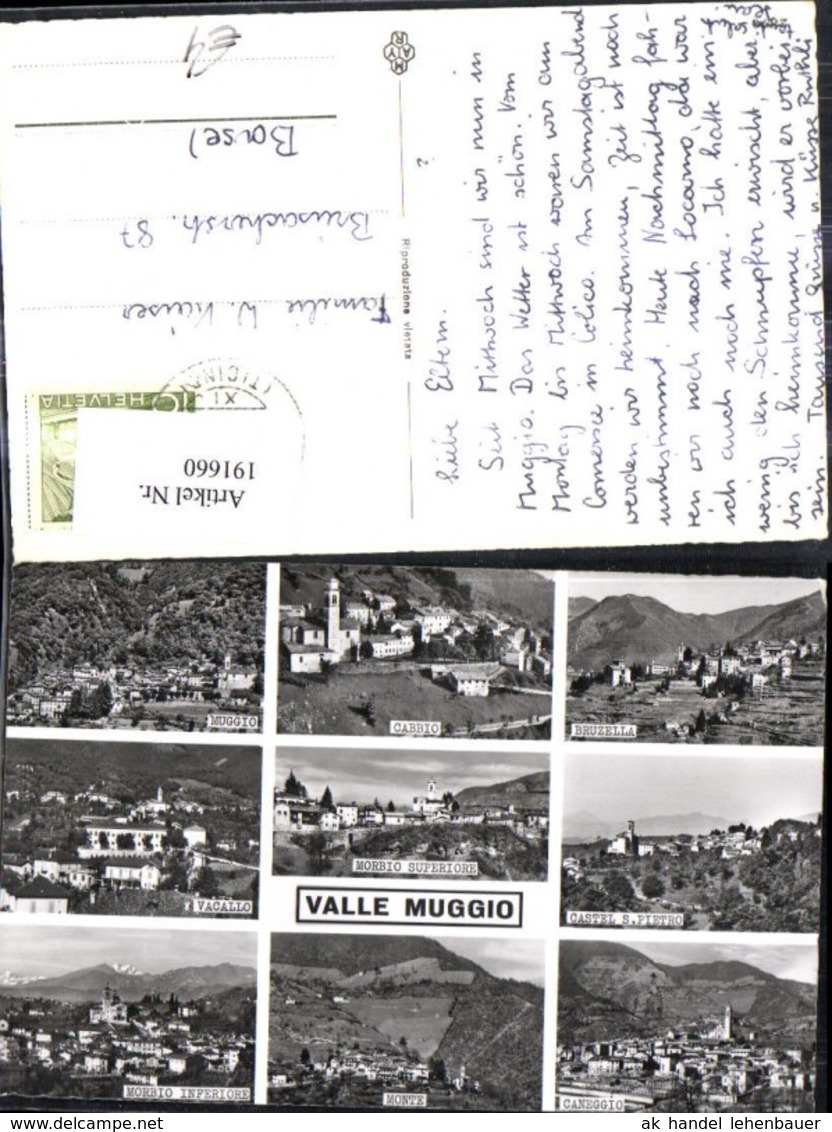 €4
Familie W. Kaiser
Brisacherstr. 87
Basel
MAYR
Riproduzione vietata
HELVETIA
(TICINO)
XI
Artikel Nr.
191660
Liebe Eltern.
Seit Mittwoch sind wir nun in
Muggio. Das Wetter ist schön. Vom
Montag bis Mittwoch waren wir am
Comersee in Colico. Am Samstagabend
werden wir heimkommen, Zeit ist noch
unbestimmt. Heute Nachmittag fah-
ren wir noch nach Locarno, da war
ich auch noch nie. Ich hatte ein
wenig den Schnupfen erwischt, aber
bis ich heimkomme, wird er vorbei
sein. Tausend Grüsse u. Küsse Ruthli
MUGGIO
CABBIO
BRUZELLA
VACALLO
MORBIO SUPERIORE
CASTEL S. PIETRO
VALLE MUGGIO
MORBIO INFERIORE
MONTE
CANEGGIO
ak handel lehenbauer